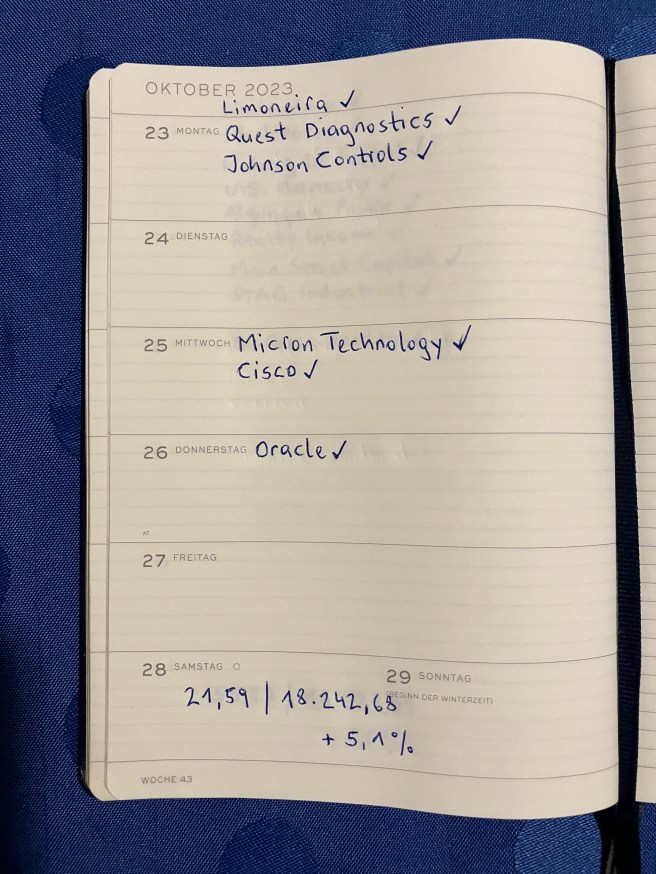 OKTOBER 2023
Limoneira ✓
23 MONTAG Quest Diagnostics ✓
Johnson Controls ✓
24 DIENSTAG
25 MITTWOCH Micron Technology ✓
Cisco ✓
26 DONNERSTAG Oracle ✓
AT
27 FREITAG
28 SAMSTAG
29 SONNTAG
(BEGINN DER WINTERZEIT)
21,59 | 18.242,68
+ 5,1%
WOCHE 43